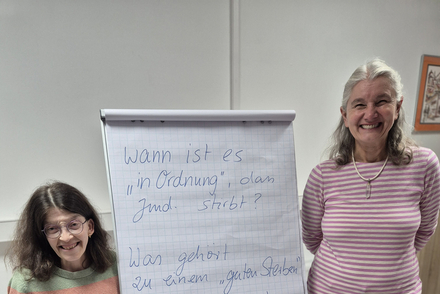 Wann ist es
„in Ordnung", dass
Jmd. stirbt?
Was gehört
zu einem „guten Sterben"